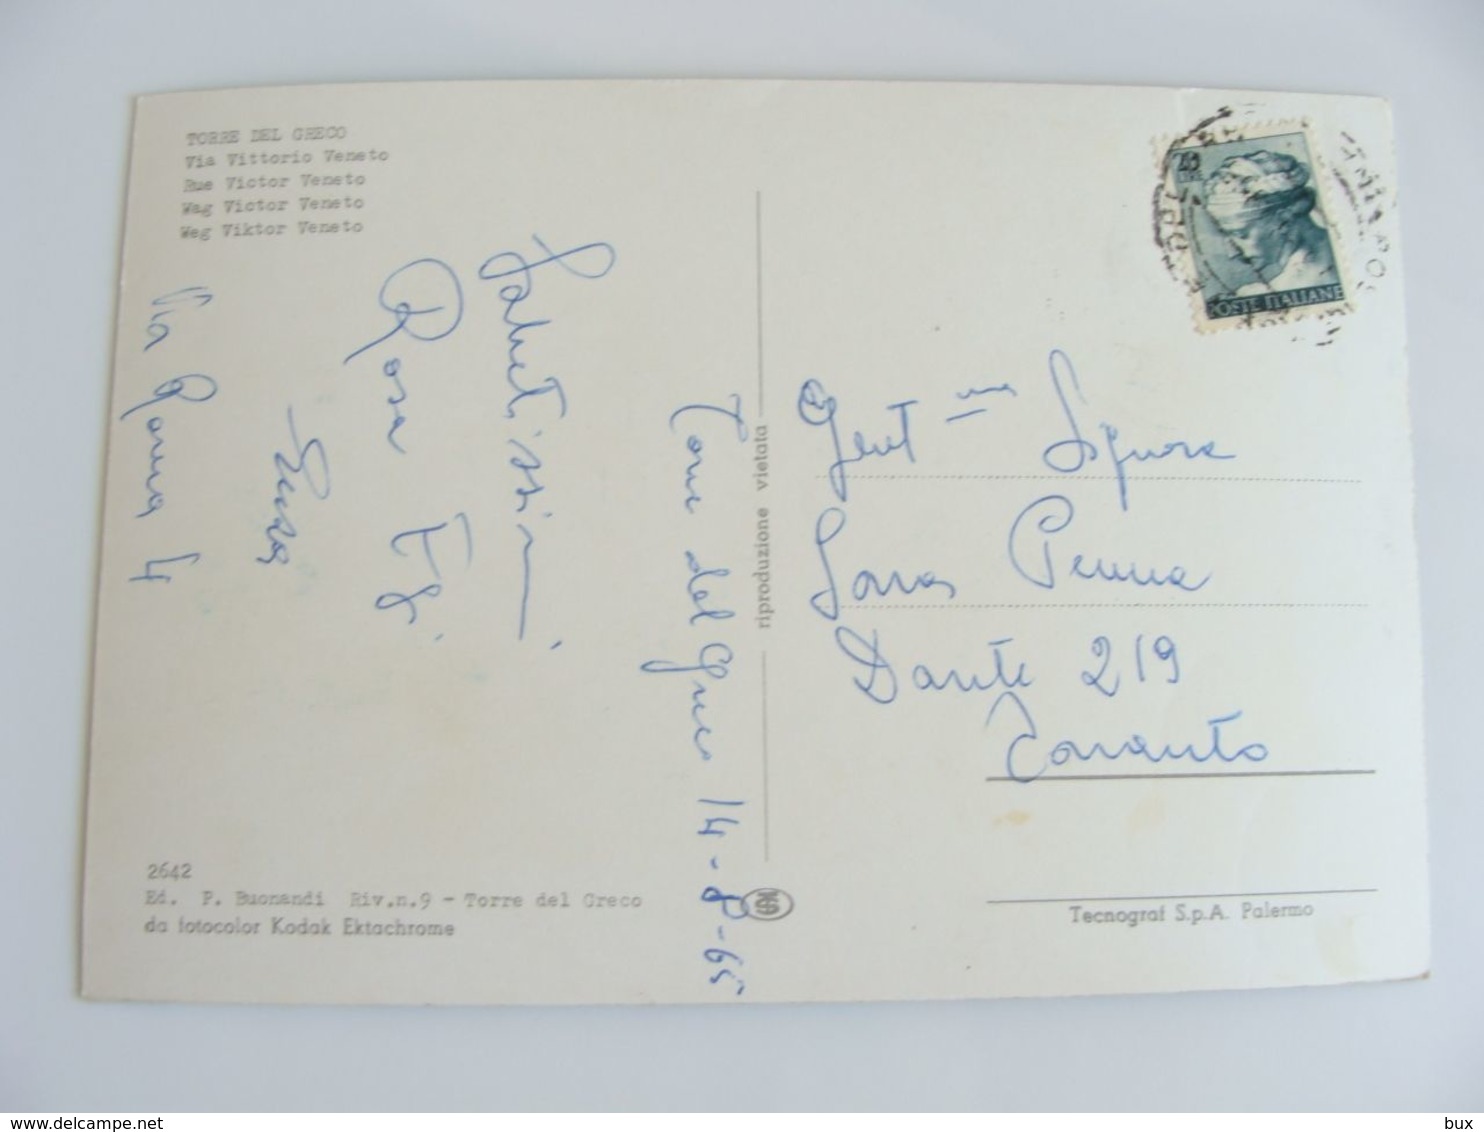 TORRE DEL GRECO
Via Vittorio Veneto
Rue Victor Veneto
Wag Victor Veneto
Weg Viktor Veneto
40
LIRE
POSTE ITALIANE
Torre del Greco 14-8-65
Salutissimi
Rosa
Via Roma 4
Gent ma Signora
Penna
Dante 219
Taranto
riproduzione vietata
2642
Ed. P. Buonandi Riv.n.9 - Torre del Greco
da fotocolor Kodak Ektachrome
Tecnograf S.p.A. Palermo
delcampe.net
bux